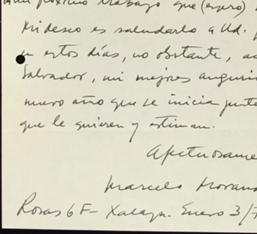 próximo trabajo que (espero)
Mi deseo es saludarlo a Ud.
en estos días, no obstante,
Salvador, mi mejores augurios
nuevo año que se inicia junto
que le quieren y estiman.
Afectuosame
Marcelo
Rosas 6 F - Xalapa. Enero 3/7